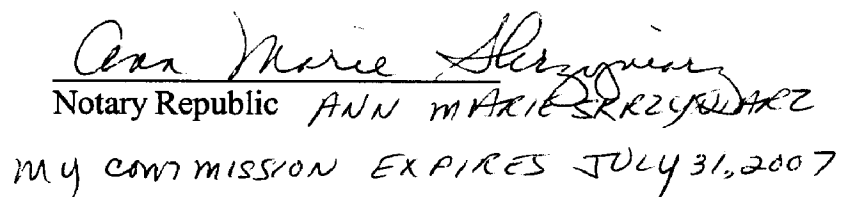 Ann Marie Skrzyniarz
Notary Republic ANN MARIE SKRZYNIARZ
MY COMMISSION EXPIRES JULY 31, 2007